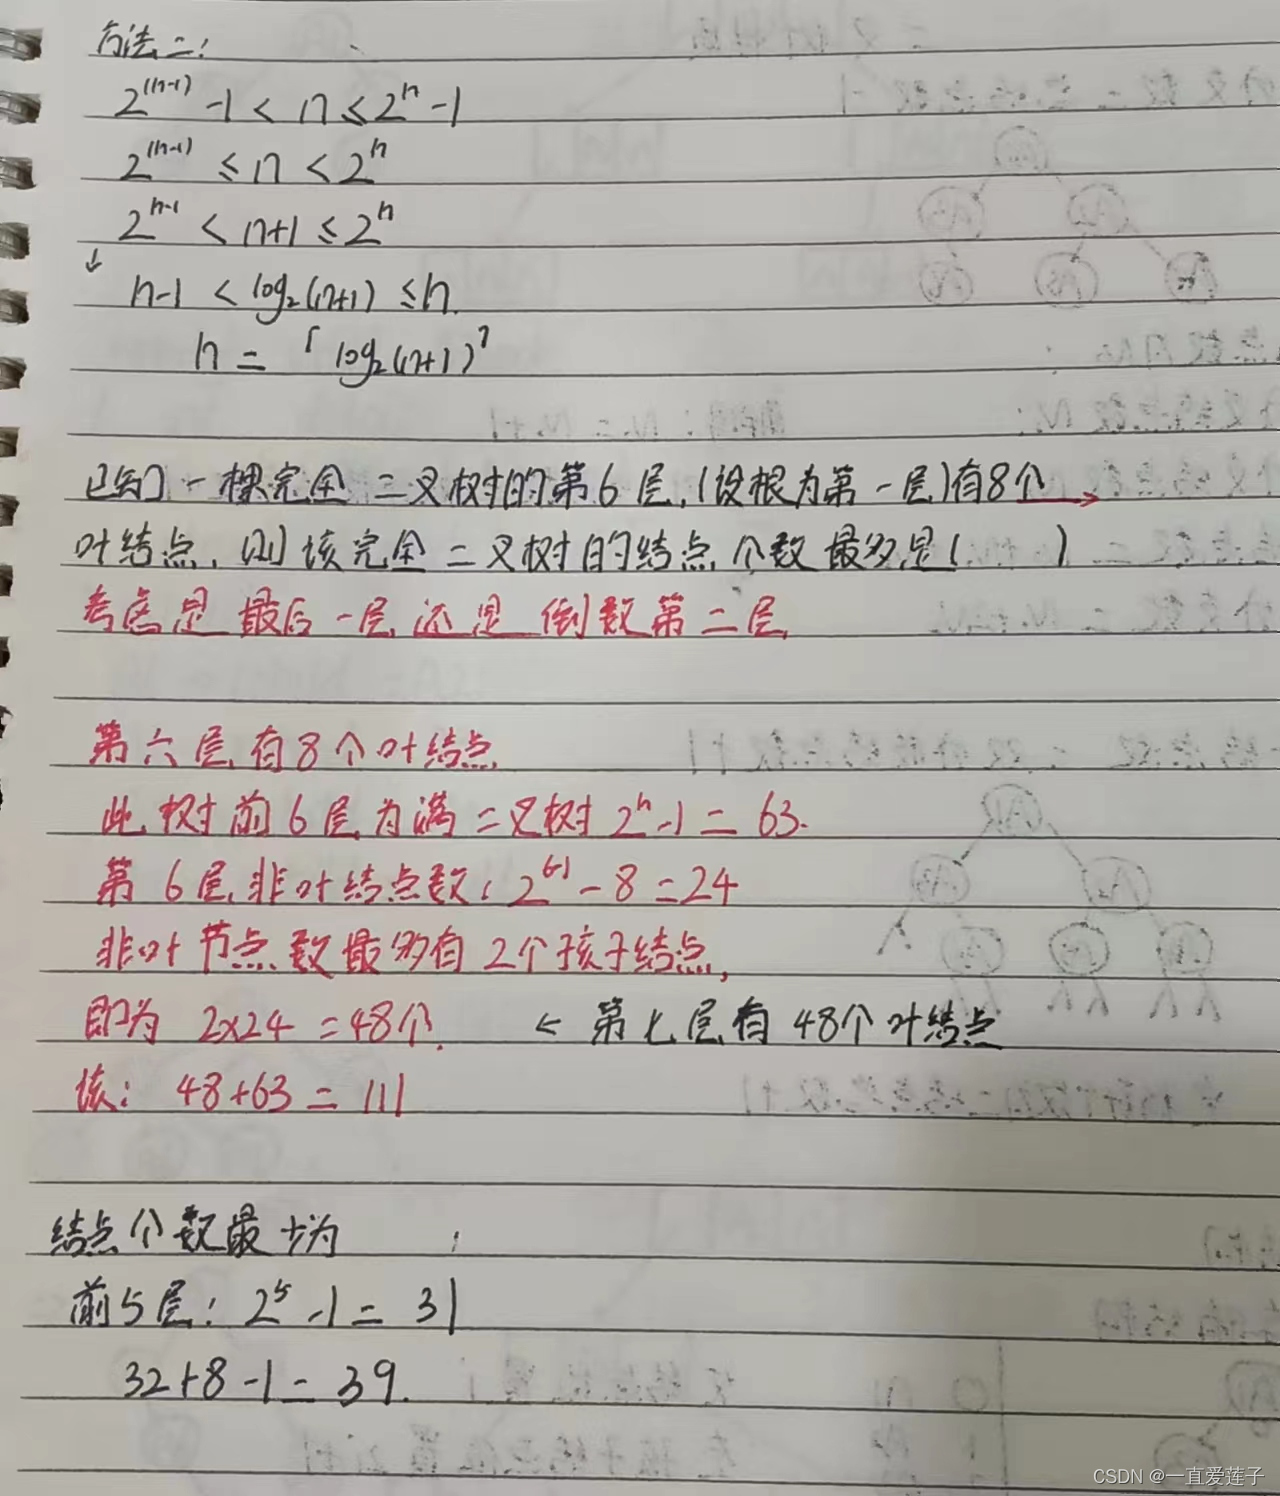 方法二:
2^(h-1) -1 < n ≤ 2^h -1
2^(h-1) ≤ n < 2^h
2^h-1 < n+1 ≤ 2^h
↓
h-1 < log₂(n+1) ≤ h
h = ⌈log₂(n+1)⌉
已知一棵完全二叉树的第6层,(设根为第一层)有8个→
叶结点,则该完全二叉树的结点个数最多是( )
考虑是最后一层还是倒数第二层
第六层有8个叶结点
此树前6层为满二叉树 2^h-1 = 63.
第6层非叶结点数: 2^6-1 - 8 = 24
非叶节点数最多有2个孩子结点,
即为 2×24 = 48个. ← 第七层有48个叶结点
该: 48+63 = 111
结点个数最少为
前5层: 2^5 -1 = 31
32+8-1 = 39.
CSDN @一直爱莲子